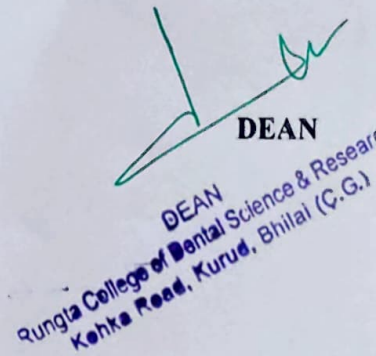 DEAN
DEAN
Rungta College of Dental Science & Resear
Kohka Road, Kurud, Bhilai (C.G.)